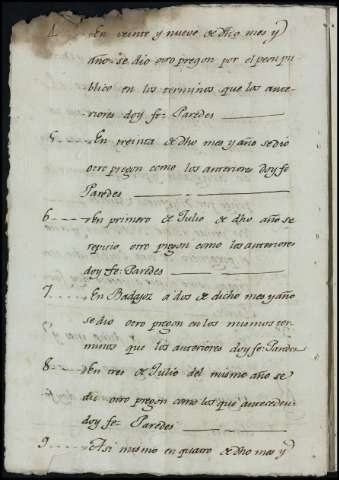 4 En veinte y nueve de dho mes y
año se dio otro pregon por el peon pu
blico en los terminos que los ante-
riores doy fe: Paredes
5 En treinta de dho mes y año se dio
otro pregon como los anteriores doy fe
Paredes
6 En primero de Julio de dho año se
repitio otro pregon como los anteriores
doy fe: Paredes
7 En Badajoz a dos de dicho mes y año
se dio otro pregon en los mismos ter-
minos que los anteriores doy fe: Paredes
8 En tres de Julio del mismo año se
dio otro pregon como los que anteceden
doy fe: Paredes
9 Asi mismo en quatro de dho mes y